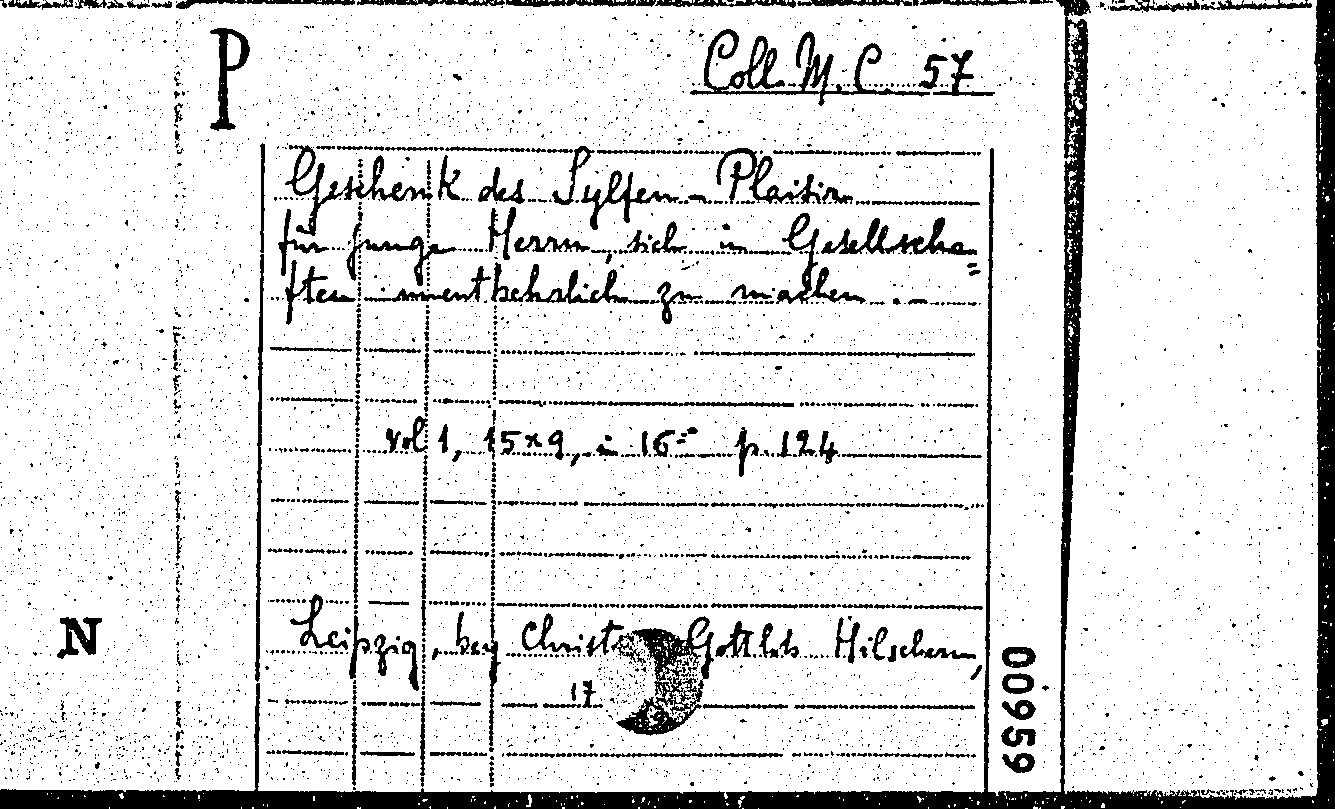 P
Coll. M. C. 57
Geschenk des Sylfen - Plaisir
für junge Herrn, sich in Gesellscha=
ften unentbehrlich zu machen . -
vol 1, 15×9, in 16° p. 124
N
Leipzig, bey Christ Gottlob Hilschern,
17
00959